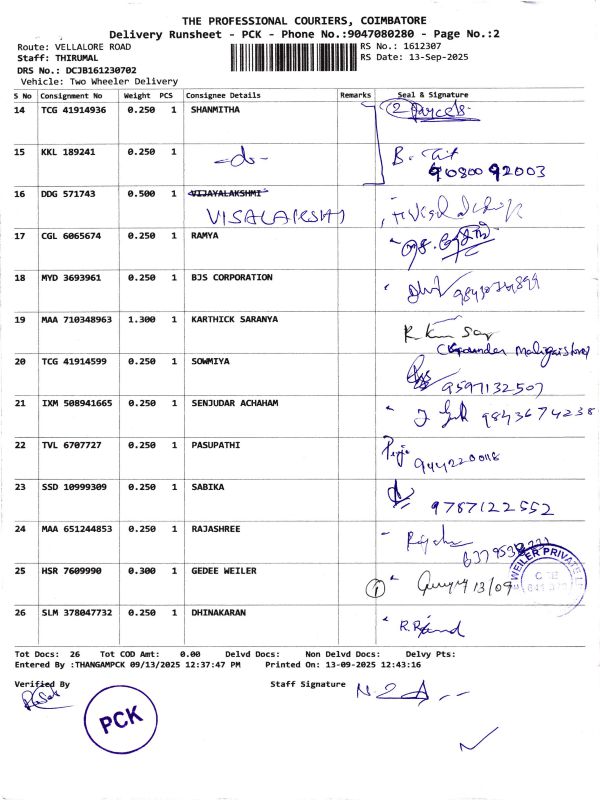 THE PROFESSIONAL COURIERS, COIMBATORE
Delivery Runsheet - PCK - Phone No.:9047080280 - Page No.:2
Route: VELLALORE ROAD RS No.: 1612307
Staff: THIRUMAL RS Date: 13-Sep-2025
DRS No.: DCJB161230702
Vehicle: Two Wheeler Delivery
S No Consignment No Weight PCS Consignee Details Remarks Seal & Signature
14 TCG 41914936 0.250 1 SHANMITHA 2 Parcels
15 KKL 189241 0.250 1 -do-
16 DDG 571743 0.500 1 VIJAYALAKSHMI
VISALAKSHI
17 CGL 6065674 0.250 1 RAMYA
18 MYD 3693961 0.250 1 BJS CORPORATION
19 MAA 710348963 1.300 1 KARTHICK SARANYA
20 TCG 41914599 0.250 1 SOWMIYA
9597132507
21 IXM 508941665 0.250 1 SENJUDAR ACHAHAM 9843674238
22 TVL 6707727 0.250 1 PASUPATHI
23 SSD 10999309 0.250 1 SABIKA
9787122552
24 MAA 651244853 0.250 1 RAJASHREE
25 HSR 7609990 0.300 1 GEDEE WEILER 1 13/09
26 SLM 378047732 0.250 1 DHINAKARAN
Tot Docs: 26 Tot COD Amt: 0.00 Delvd Docs: Non Delvd Docs: Delvy Pts:
Entered By :THANGAMPCK 09/13/2025 12:37:47 PM Printed On: 13-09-2025 12:43:16
Verified By Staff Signature
PCK